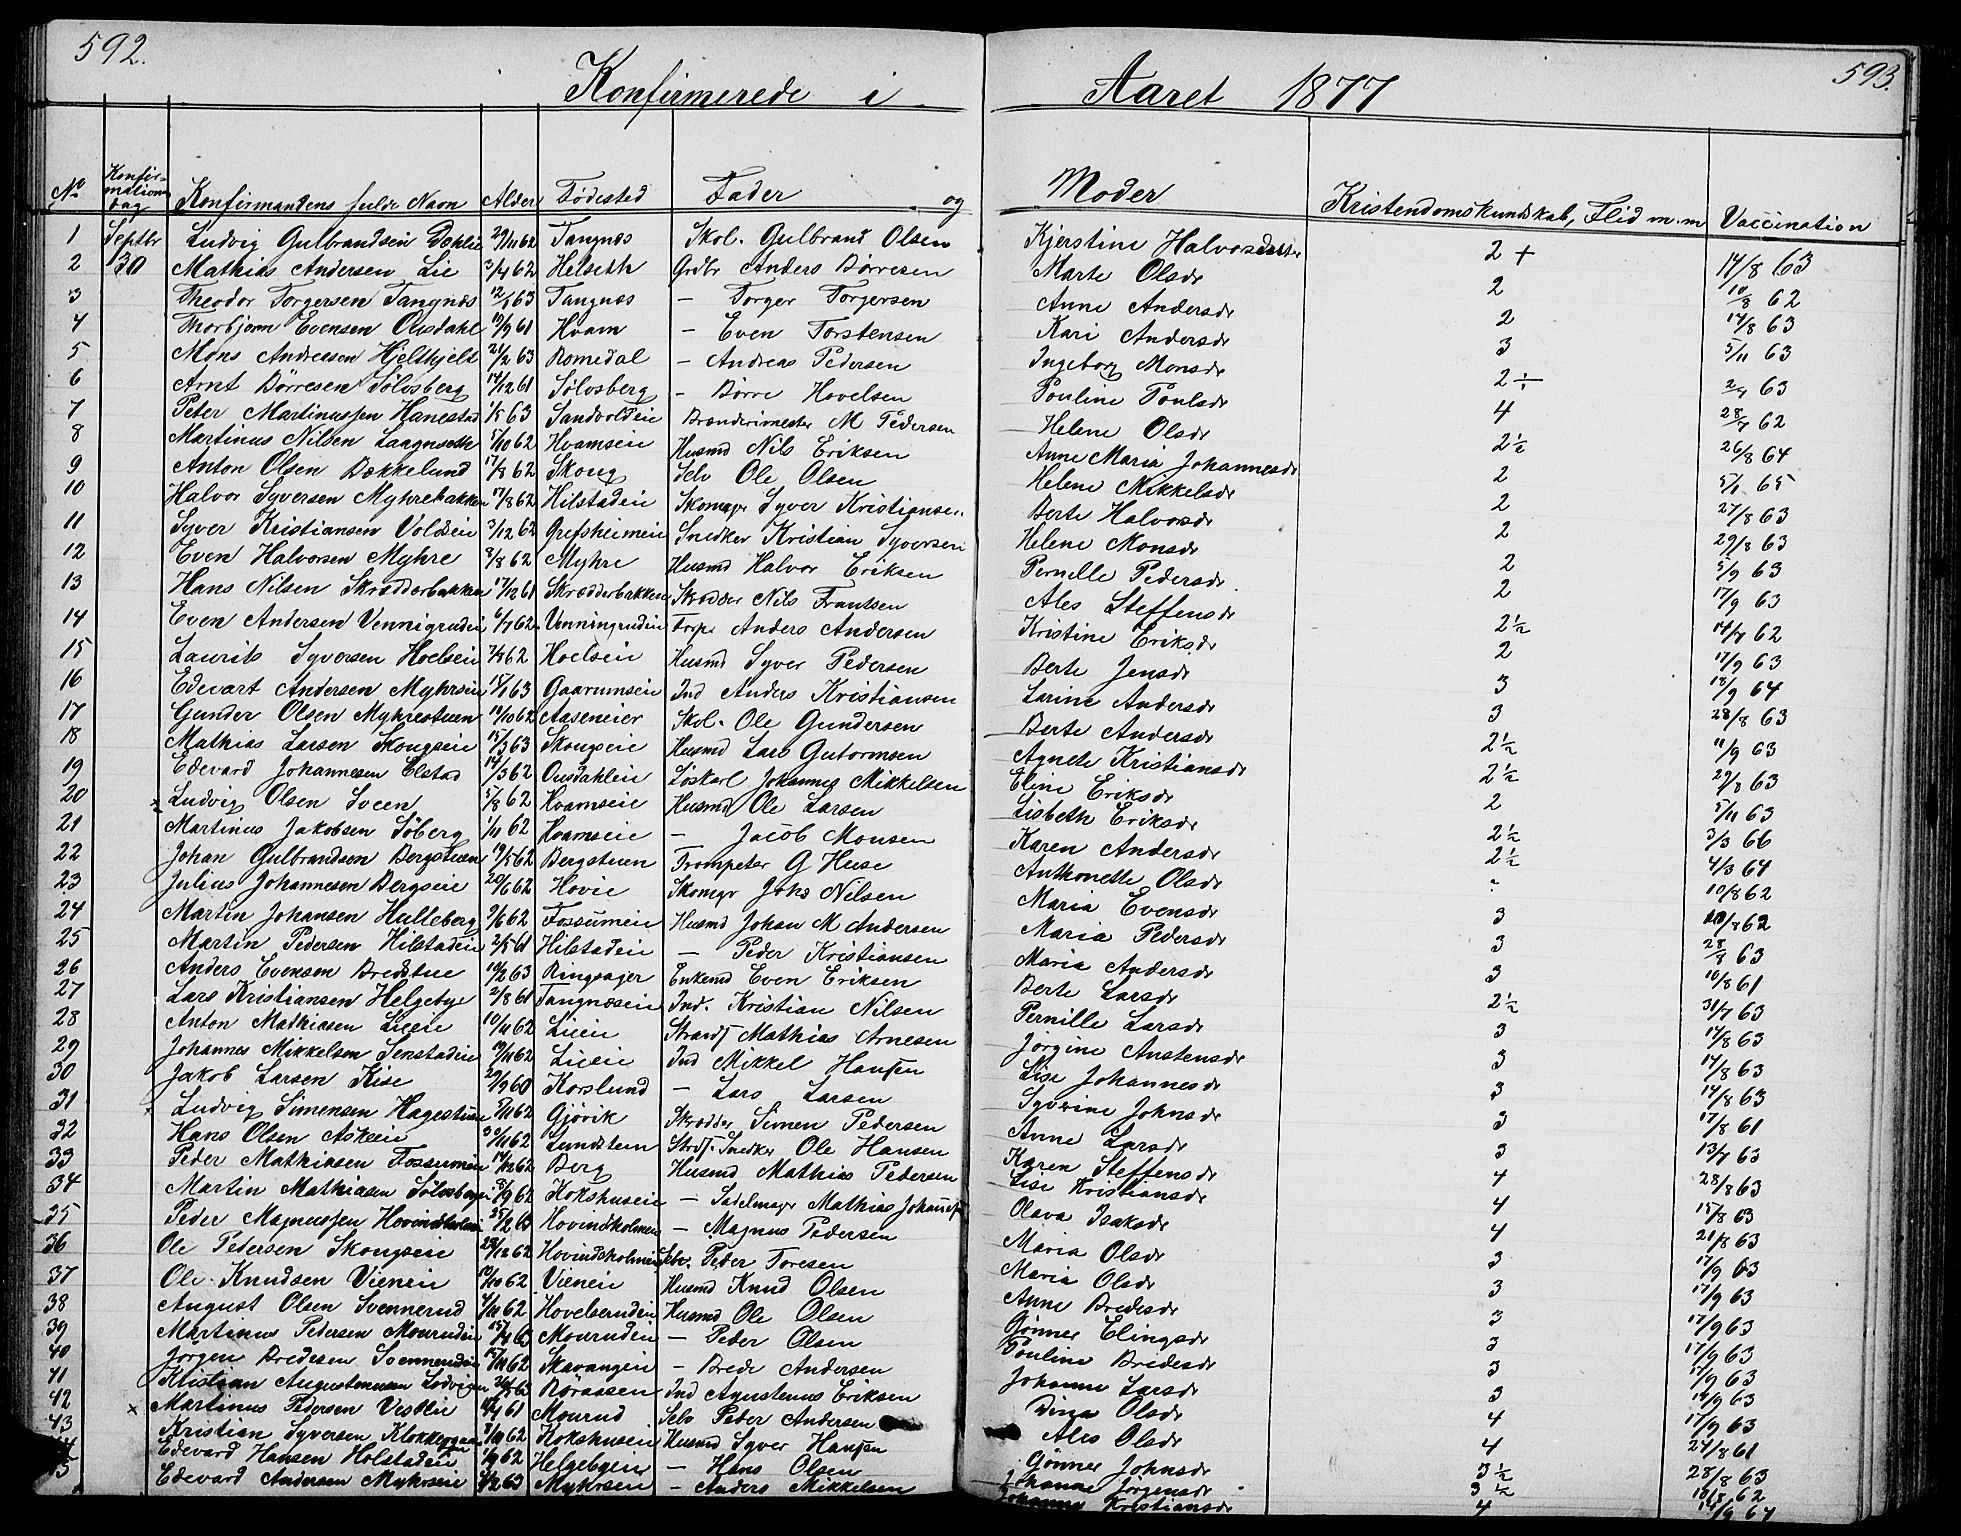 592.
593.
Konfirmerede i Aaret 1877
No Konfirmations dag Konfirmandens fulde Navn Alder Fødested Fader og Moder Kristendomskundskab, Flid m. m Vaccination
1 Septbr Ludvig Gulbrandsen Dæhlie 29/11 62 Tangnæs Skol. Gulbrand Olsen Kjerstine Halvorsdatter 2 + 14/8 63
2 30 Mathias Andersen Lie 3/4 62 Helseth Grdbr Anders Børresen Marte Olsdr 2 10/8 62
3 Theodor Torgersen Tangnæs 12/1 63 Tangnæs - Torger Torgersen Anne Andersdr 2 14/8 63
4 Thorbjørn Evensen Ousdahl 19/9 61 Hvam - Even Torstensen Kari Andersdr 3 5/11 63
5 Mons Andreesen Hjelthjelt 21/2 63 Romedal - Andreas Pedersen Ingeborg Monsdr 2 ÷ 2/7 63
6 Arnt Børresen Sølosberg 14/12 61 Sølosberg - Børre Hovelsen Pouline Poulsdr 4 28/7 62
7 Peter Martinussen Hanestad 1/5 63 Sandvolden Brænderimester M Pedersen Helene Olsdr 2½ 26/8 64
8 Martinus Nilsen Laagnseth 5/10 62 Hvamseie Husmd Nils Eriksen Anne Maria Johannesdr 2 5/1 65
9 Anton Olsen Bækkelund 17/8 62 Skoug Selv Ole Olsen Helene Mikkelsdr 2 27/8 63
10 Halvor Syversen Myhrebakken 17/8 62 Hilstadeie Skomager Syver Kristiansen Berte Halvorsdr 2 29/8 63
11 Syver Kristiansen Voldeie 3/12 62 Grefsheimeie Snedker Kristian Syversen Helene Monsdr 2 5/9 63
12 Even Halvorsen Myhre 8/8 62 Myhre Husmd Halvor Eriksen Pernelle Pedersdr 2 17/9 63
13 Hans Nilsen Skrædderbakken 17/12 61 Skrædderbakken Skrædder Nils Frantsen Ales Steffensdr 2½ 14/7 62
14 Even Andersen Venningrudeie 6/7 62 Venningrudeie Forp. Anders Andersen Kristine Eriksdr 2 17/9 63
15 Laurits Syversen Hoelseie 7/8 62 Hoelseie Husmd Syver Pedersen Berte Jensdr 3 18/9 64
16 Edevart Andersen Myhrseie 15/1 63 Gaarumseie Ind Anders Kristiansen Larine Andersdr 3 28/8 63
17 Gunder Olsen Myhrestuen 11/10 62 Aaseneier Skol. Ole Gundersen Berte Andersdr 2½ 11/9 63
18 Mathias Larsen Skougseie 15/3 63 Skougseie Husmd Lars Gutormsen Agnete Kristiansdr 2½ 29/8 63
19 Edevard Johannesen Elstad 14/3 62 Ousdahleie Løskarl Johannes Mikkelsen Eline Eriksdr 2 5/11 63
20 Ludvig Olsen Sveen 5/8 62 Hvamseie Husmd Ole Larsen Lisbeth Eriksdr 2½ 3/3 66
21 Martinus Jakobsen Søberg 1/11 62 Hvamseie - Jacob Monsen Karen Andersdr 2½ 4/3 64
22 Johan Gulbrandsen Bergstuen 19/5 62 Bergstuen Trompeter G Huse Anthonette Olsdr 10/8 62
23 Julius Johannesen Bergseie 20/6 62 Hovie Skomgr Johs Nilsen Maria Evensdr 3 20/8 62
24 Martin Johansen Hulleberg 9/6 62 Fossumeie Husmd Johan M Andersen Maria Pedersdr 3 28/8 63
25 Martin Pedersen Hilstadeie 2/5 61 Hilstadeie - Peder Kristiansen Maria Andersdr 3 10/8 61
26 Anders Evensen Bredstue 19/2 63 Ringsager Enkemd Even Eriksen Berte Larsdr 2½ 31/7 63
27 Lars Kristiansen Helgebye 2/8 61 Tangnæseie Ind. Kristian Nilsen Pernille Larsdr 3 14/8 63
28 Anton Mathiasen Lieeie 10/11 62 Lieeie Strandf Mathias Arnesen Jørgine Anstensdr 3 14/8 63
29 Johannes Mikkelsen Senstadeie 19/11 62 Lieeie Ind Mikkel Hansen Lise Johannesdr 3 14/8 63
30 Jakob Larsen Kise 29/9 60 Korslund - Lars Larsen Syverine Johnsdr 3 17/8 61
31 Ludvig Simensen Hagestuen 5/11 62 Gjøvik Skrædder Simen Pedersen Anne Larsdr 3 13/7 63
32 Hans Olsen Askeeie 30/11 62 Sundstein Strdf. Snedker Ole Hansen Karen Steffensdr 4 28/8 63
33 Peder Mathiasen Fossumeie 14/12 62 Berg Husmd Mathias Pedersen Lise Kristiansdr 4 15/8 63
34 Martin Mathiasen Sølosberg 5/9 62 Kokshuseie - Sadelmager Mathias Johansen Olava Isaksdr 4 21/8 63
35 Peder Magnussen Hovindsholm 25/2 63 Hovindsholmen - Magnus Pedersen Maria Olsdr 3 17/9 63
36 Ole Pedersen Skougseie 28/12 62 Hovindsholmeie Selv. Peder Toresen Maria Olsdr 3 17/9 63
37 Ole Knudsen Vieneie 10/10 62 Vieneie Husmd Knud Olsen Anne Bredesdr 3 17/9 63
38 August Olsen Svennerud 4/11 62 Hovelsrudeie Husmd Ole Olsen Gønner Elingsdr 3 17/9 63
39 Martinus Pedersen Mourudeie 15/4 63 Mourudeie - Peder Olsen Pouline Bredesdr 3 17/9 63
40 Jørgen Bredesen Svennerudeie 15/11 62 Skavangeie - Brede Andersen Johanne Larsdr 3 14/9 63
41 Kristian Augustinusen Lodvigen 24/5 63 Børaasen Ind Agustenus Eriksen Dina Olsdr 4 17/9 63
42 Martinus Pedersen Vestlie 4/4 61 Mourud Selv Peder Andersen Ales Olsdr 4 24/8 61
43 Kristian Syversen Klokkergaard 7/10 62 Kokshusen Husmd Syver Hansen Gønner Johnsdr 3½ 28/8 63
Edevard Hansen Holstadeie 1/9 62 Helgebyeie - Hans Olsen Johanne Jørgensdr 3½ 10/8 62
45 Edevard Andersen Myhrseie 4/2 63 Myhrsen - Anders Mikkelsen Johanne Kristiansdr 4 14/9 64